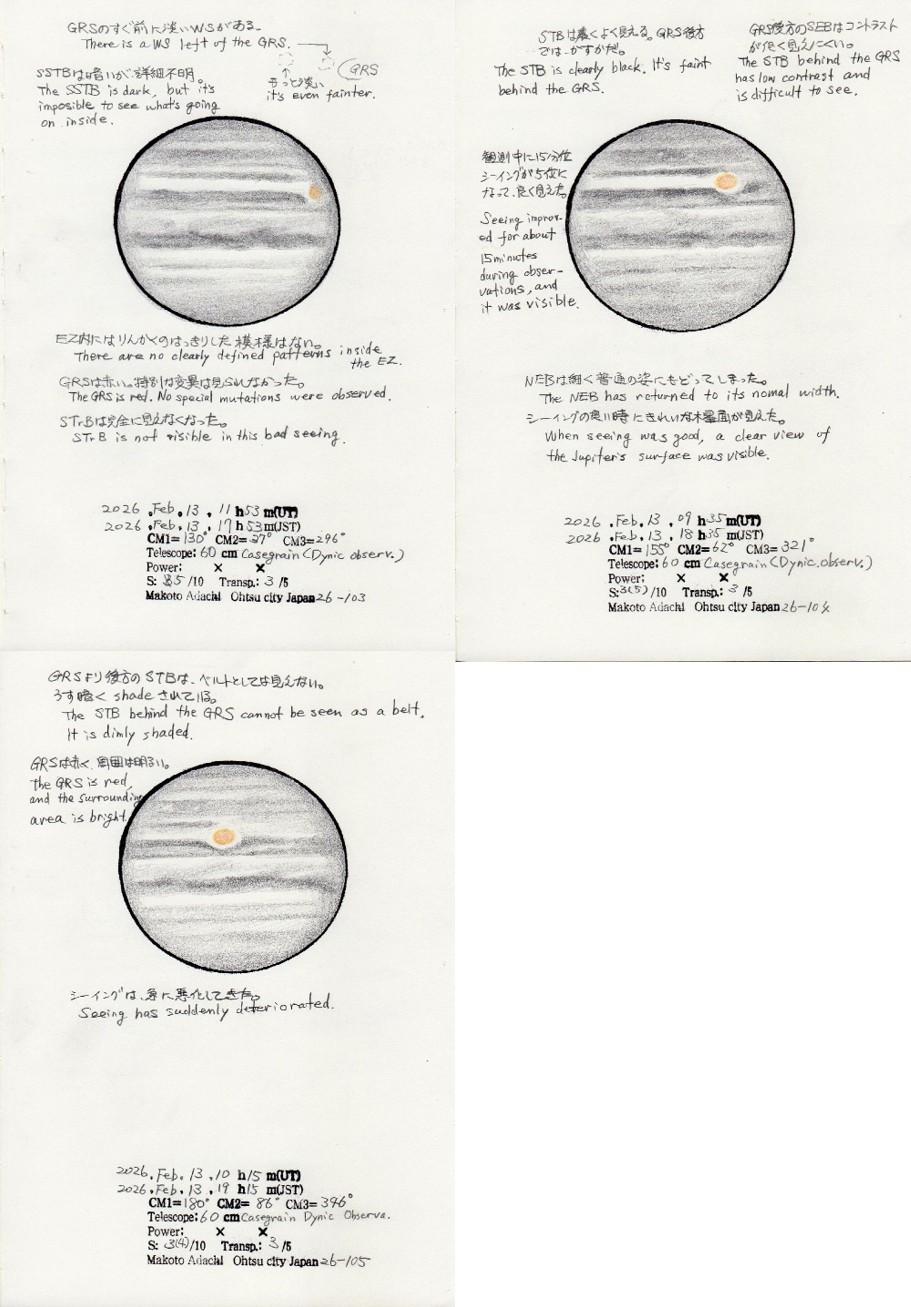 GRSのすぐ前に淡いWSがある。
There is a WS left of the GRS.
GRS
もっと淡い
it's even fainter.
SSTBは暗いが、詳細不明。
The SSTB is dark, but it's
imposible to see what's going
on inside.
EZ内にはりんかくのはっきりした模様はない。
There are no clearly defined patterns inside
the EZ.
GRSは赤い。特別な変異は見られなかった。
The GRS is red. No special mutations were observed.
STrBは完全に見えなくなった。
STrB is not visible in this bad seeing.
2026 .Feb. 13 , 11 h 53 m(UT)
2026 .Feb. 13 , 17 h 53 m(JST)
CM1= 130° CM2= 37° CM3= 296°
Telescope: 60 cm Casegrain (Dynic observ.)
Power: × ×
S: 5/10 Transp.: 3 /5
Makoto Adachi Ohtsu city Japan 26-103
STBは濃くよく見える。GRS後方
では、かすかだ。
The STB is clearly black. It's faint
behind the GRS.
GRS後方のSEBはコントラスト
が低く見えにくい。
The STB behind the GRS
has low contrast and
is difficult to see.
観測中に15分位
シーイングが5位に
なって、良く見えた。
Seeing improv-
ed for about
15 minutes
during obser-
vations, and
it was visible.
NEBは細く普通の姿にもどってしまった。
The NEB has returned to its nomal width.
シーイングの良い時にきれいな木星面が見えた。
When seeing was good, a clear view of
the Jupiter's surface was visible.
2026 .Feb. 13 , 09 h 35 m(UT)
2026 .Feb. 13 , 18 h 35 m(JST)
CM1= 155° CM2= 62° CM3= 321°
Telescope: 60 cm Casegrain (Dynic.observ.)
Power: × ×
S: 3(5) /10 Transp.: 3 /5
Makoto Adachi Ohtsu city Japan 26-104
GRSより後方のSTBは、ベルトとしては見えない。
うす暗く shade されている。
The STB behind the GRS cannot be seen as a belt.
It is dimly shaded.
GRSは赤く、周囲は明るい。
the GRS is red,
and the surrounding
area is bright.
シーイングは、急に悪化してきた。
Seeing has suddenly deteriorated.
2026 .Feb. 13 , 10 h 15 m(UT)
2026 .Feb. 13 , 19 h 15 m(JST)
CM1= 180° CM2= 86° CM3= 346°
Telescope: 60 cm Casegrain Dynic Observa.
Power: × ×
S: 3(4) /10 Transp.: 3 /5
Makoto Adachi Ohtsu city Japan 26-105